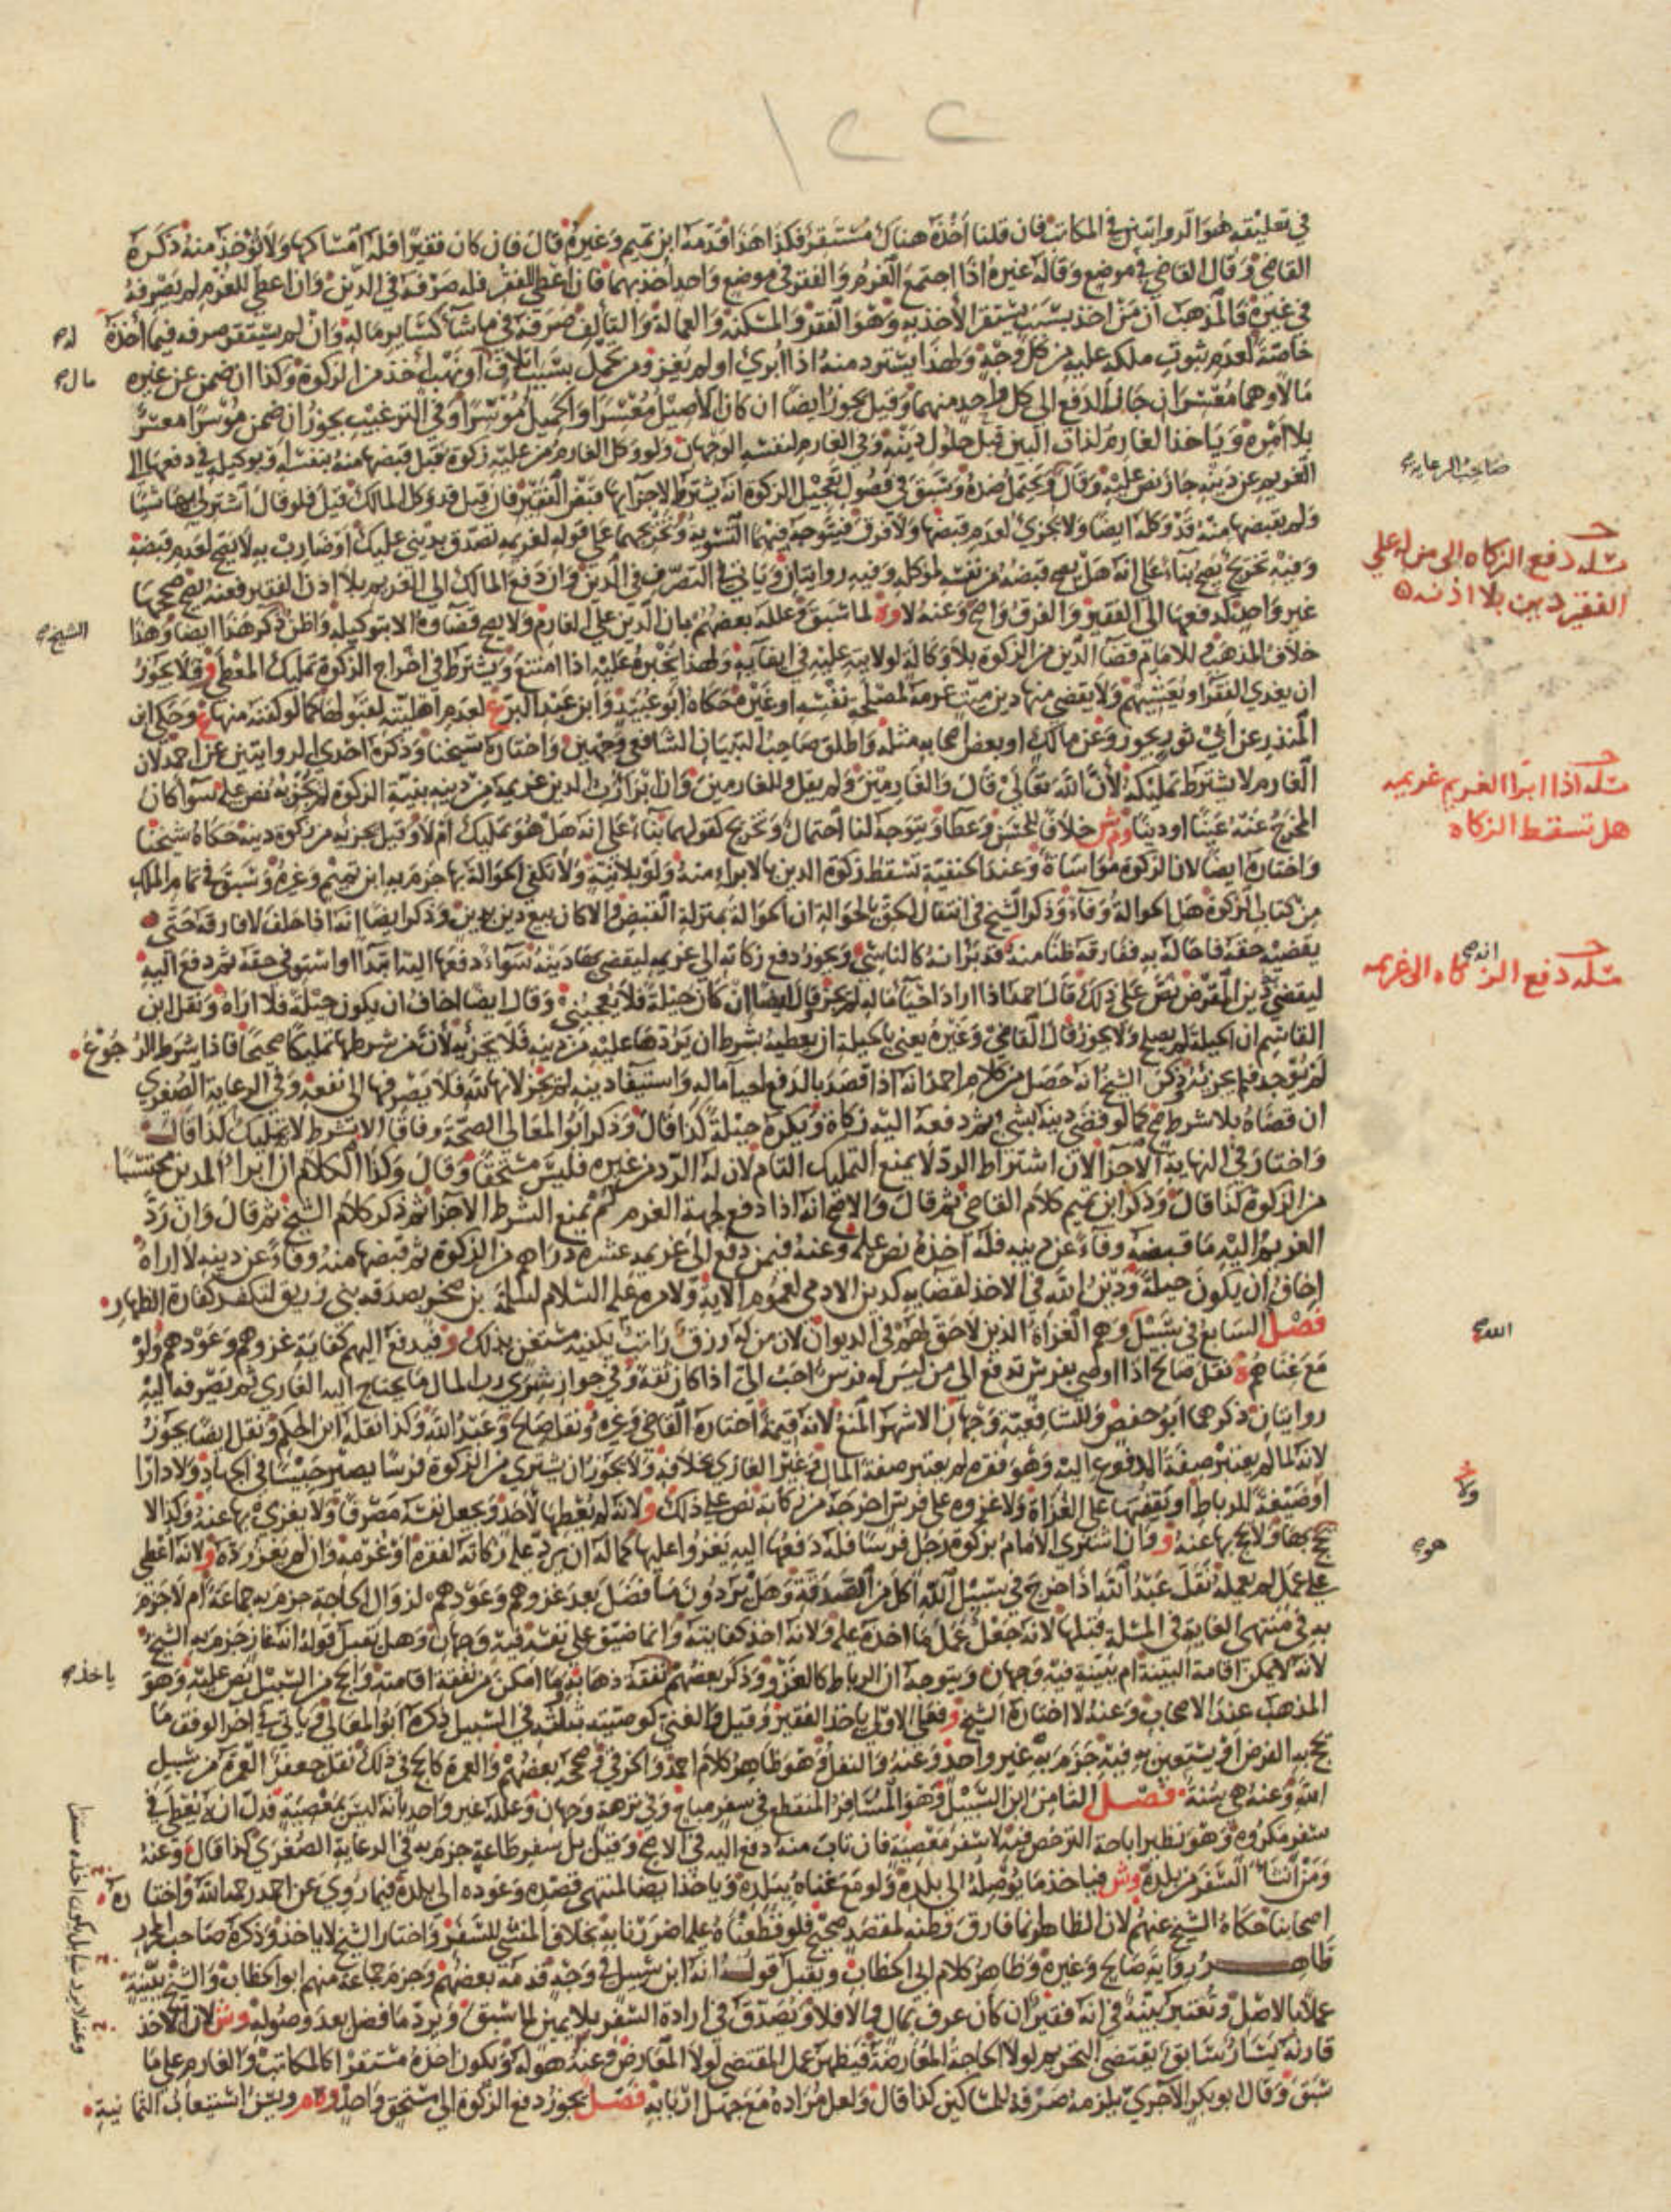 ١٢٢
في تعليقه هو الروايتين في المكاتب فان قلنا اخذه هناك مستقر فكذا هذا قدمه ابن تميم وغيره قال فان كان فقيرا فله امساكها ولا تؤخذ منه ذكره
القاضي وقال القاضي في موضع وقاله غيره اذا اجتمع الغرم والفقر في موضع واحد اخذ بهما فان اعطي للفقر فله صرفه في الدين وان اعطي للغرم لم يصرفه
في غيره فالمذهب ان من اخذ بسبب يستقر الاخذ به وهو الفقر والمسكنة والعمالة والتاليف صرفه في ما شاء كساير ماله وان لم يستقر صرفه فيما اخذه له صح
خاصة لعدم ثبوت ملكه عليه من كل وجه ولهذا يسترد منه اذا ابرئ او لم يغز ومن تحمل بسبب اتلاف او نهب اخذ من الزكوة وكذا ان ضمن عن غيره مال صح
مالا وهما معسران جاز الدفع الى كل واحد منهما وقيل يجوز ايضا ان كان الاصيل معسرا والحميل موسرا وفي الترغيب يجوز ان ضمن موسرا معسر
بلا امره وياخذ الغارم لذات البين قبل حلول دينه وفي الغارم لنفسه الوجهان ولو وكل الغارم من عليه زكوة قبل قبضها منه بنفسه او بوكيله في دفعها الى
الغريم عن دينه جاز نص عليه وقال ويحتمل ضده وسبق في فصول تعجيل الزكوة انه يشترط لاجزايها قبض الفقير فان قيل قد وكل المالك قيل فلو قال اشتر لي بها شيئا
صاحب الرعاية صح
ولم يقبضها منه فقد وكله ايضا ولا يجزئ لعدم قبضها ولا فرق فيتوجه فيهما التسوية وتخريجهما على قوله لغريمه تصدق بديني عليك او ضارب به لا يصح لعدم قبضه
مسئلة دفع الزكاه الى من له على
الفقير دين بلا اذنه
وفيه تخريج يصح بناء على انه هل يصح قبضه من نفسه لموكله وفيه روايتان وياتي في التصرف في الدين وان دفع المالك الى الغريم بلا اذن الفقير فعنه يصح صححها
غير واحد كدفعها الى الفقير والفرق واضح وعنه لا وه لما سبق وعلله بعضهم بان الدين على الغارم ولا يصح قضاوه الا بتوكيله واظن ذكر هذا ايضا وهذا الشيخ صح
خلاف المذهب وللامام قضاء الدين من الزكوة بلا وكالة لولايته عليه في ايفايه ولهذا يجبره عليه اذا امتنع ويشترط في اخراج الزكوة تمليك المعطى و فلا يجوز
ان يغدي الفقراء ويعشيهم ولا يقضي منها دين ميت غرمه لمصلحة نفسه او غيره حكاه ابو عبيد وابن عبد البر ع لعدم اهليته لقبولها كما لو كفنه منها ع وحكى ابن
المنذر عن ابي ثور يجوز وعن مالك او بعض اصحابه مثله واطلق صاحب التبيان الشافعي وجهين واختاره شيخنا وذكره احدى الروايتين عن احمد لان
الغارم لا يشترط تمليكه لان الله تعالى قال والغارمين ولم يقل وللغارمين وان ابراء رب الدين غريمه من دينه بنية الزكوة لم يجزئه نص عليه سواء كان
مسئلة اذا ابرا الغريم غريمه
هل تسقط الزكاه
المخرج عنه عينا او دينا وم ش خلافا للحسن وعطاء ويتوجه لنا احتمال وتخريج كقولهما بناء على انه هل هو تمليك ام لا وقيل يجزئه من زكوة دينه حكاه شيخنا
واختاره ايضا لان الزكوة مواساة وعند الحنفية تسقط زكوة الدين بالابراء منه ولو بلا نية ولا تكفي الحوالة بها جزم به ابن تميم وغيره وسبق في تمام الملك
من كتاب الزكوة هل الحوالة وفاء وذكر الشيخ في انتقال الحق بالحوالة ان الحوالة بمنزلة القبض والا كان بيع دين بدين وذكر ايضا انه اذا حلف لا فارقه حتى
يقضيه حقه فاحاله به ففارقه ظنا منه قد بر انه كالناسي ويجوز دفع زكاته الى غريمه ليقضي بها دينه سواء دفعها اليه ابتداء او استوفى حقه ثم دفع اليه
مسئلة دفع الزكاه الى غريمه
ليقضي دين المقرض نص على ذلك قال احمد اذا اراد احياء ماله لم يجز وقال ايضا ان كان حيلة فلا يعجبني وقال ايضا اخاف ان يكون حيلة فلا اراه ونقل ابن
القاسم ان الحيلة لم يصلح ولا يجوز قال القاضي وغيره يعني بالحيلة ان يعطيه بشرط ان يردها عليه من دينه فلا يجزئه لان من شرطها تمليكا صحيحا فاذا شرط الرجوع
لم يوجد فلم يجزئه وذكر الشيخ انه حصل من كلام احمد انه اذا قصد بالدفع احياء ماله واستيفاء دينه لم يجز لانها لله فلا يصرفها الى نفعه وفي الرعاية الصغرى
ان قضاه بلا شرط صح كما لو قضى دينه بشيء ثم دفعه اليه زكاة ويكره حيلة كذا قال وذكر ابو المعالي الصحة وفاقا الا بشرط لا تمليك كذا قال
واختار في النهاية الاجزاء لان اشتراط الرد لا يمنع التمليك التام لان له الرد من غيره فليس مستحقا وقال وكذا الكلام ان ابراء المدين محتسبا
من الزكوة كذا قال وذكر ابن تميم كلام القاضي ثم قال والاصح انه اذا دفع لجهة الغرم لم يمنع الشرط الاجزاء ثم ذكر كلام الشيخ ثم قال وان رد
الغريم اليه ما قبضه وفاء عن دينه فله اخذه نص عليه وعنه فيمن دفع الى غريمه عشرة دراهم من الزكوة ثم قبضها منه وفاء عن دينه لا اراه
اخاف ان يكون حيلة ودين الله في الاخذ لقضايه كدين الادمي لعموم الاية ولامره عليه السلام لسلمة بن صخر بصدقة بني زريق لتكفير كفارة الظهار
فصل السابع في سبيل وهم الغزاة الذين لا حق لهم في الديوان لان من له رزق راتب يكفيه مستغن بذلك و فيدفع اليهم كفاية غزوهم وعودهم ولو
الله صح
مع غناهم ه نقل صالح اذا اوصى بفرس تدفع الى من ليس له فرس احب الي اذا كان ثقة وفي جواز شرى رب المال ما يحتاج اليه الغازي ثم يصرفه اليه
روايتان ذكرهما ابو حفص وللشافعية وجهان الاشهر المنع لانه قيمة اختاره القاضي وغيره ونقله صالح وعبد الله وكذا نقله ابن الحكم ونقل ايضا يجوز
لانه لما لم يعتبر صفة المدفوع اليه وهو فقره لم يعتبر صفة المال وغير الغازي بخلافه ولا يجوز ان يشتري من الزكوة فرسا يصير حبيسا في الجهاد ولا دارا
او ضيعة للرباط او يقفها على الغزاة ولا غزوه على فرس اخرجه من زكاته نص على ذلك و لانه لم يعطها لاحد ويجعل نفسه مصرفا ولا يغزي بها عنه وكذا لا
يحج بها ولا يحج بها عنه و وان اشترى الامام بزكوة رجل فرسا فله دفعها اليه يغزو عليها كما له ان يرد عليه زكاته لفقره او غرمه وان لم يغز رده و لانه اعطي
هو صح
على عمل لم يعمله نقل عبد الله اذا خرج في سبيل الله اكل من الصدقة وهل يردون ما فضل بعد غزوهم وعودهم لزوال الحاجة جزم به جماعة ام لا جزم
به في منتهى الغاية في المسئلة قبلها لانه جعل عمل ما اخذه عليه ولانه اخذ كفايته وانما ضيق على نفسه فيه وجهان وهل تقبل قوله انه غاز جزم به الشيخ
لانه لا يمكن اقامة البينة ام ببينة فيه وجهان ويتوجه ان الرباط كالغزو وذكر بعضهم نفقة ذهابه وما امكن من نفقة اقامته والحج من السبيل نص عليه وهو
المذهب عند الاصحاب وعنه لا اختاره الشيخ و فعلى الاول ياخذ الفقير وقيل والغني كوصيته بثلثه في السبيل ذكره ابو المعالي وياتي في اخر الوقف ما ياخذ صح
يحج به الفرض او يستعين به فيه جزم به غير واحد وعنه والنفل وهو ظاهر كلام احمد والخرقي وصححه بعضهم والعمرة كالحج في ذلك نقل جعفر العمرة من سبيل
الله وعنه هي سنة فصل الثامن ابن السبيل وهو المسافر المنقطع في سفر مباح وفي نزهة وجهان وعلله غير واحد بانه ليس بمعصية فدل انه يعطى في
سفر مكروه وهو نظير اباحة الترخص فيه لا سفر معصية فان تاب منه دفع اليه في الاصح وقيل بل سفر طاعة جزم به في الرعاية الصغرى كذا قال وعنه
ومن انشاء السفر من بلده وش فياخذ ما يوصله الى بلده ولو مع غناه ببلده وياخذ ايضا لمنتهى قصده وعوده الى بلده فيما روي عن احمد رحمه الله واختاره
اصحابنا حكاه الشيخ عنهم لان الظاهر انما فارق وطنه لمقصد صحيح فلو قطعناه عليه اضررنا به بخلاف المنشئ للسفر واختار الشيخ لا ياخذ وذكره صاحب المحرر
ظاهر رواية صالح وغيره وظاهر كلام ابي الخطاب ويقبل قوله انه ابن سبيل في وجه قدمه بعضهم وجزم جماعة منهم ابو الخطاب والشيخ ببينة
عملا بالاصل وتعتبر بينة في انه فقير ان كان عرف بمال والا فلا ويصدق في ارادة السفر بلا يمين لما سبق ويرد ما فضل بعد وصوله وش لان الاخذ
قارنه يسار سابق يقتضي التحريم لولا الحاجة المعارضة فيظهر عمل المقتضي لولا المعارض وعنه هو له ويكون اخذه مستقرا كالمكاتب والغارم على ما
سبق وقال ابو بكر الاجري يلزمه صرفه للمساكين كذا قال ولعل مراده مع جهل اربابه فصل يجوز دفع الزكوة الى مستحق واحد وه م ويسن استيعاب الثمانية